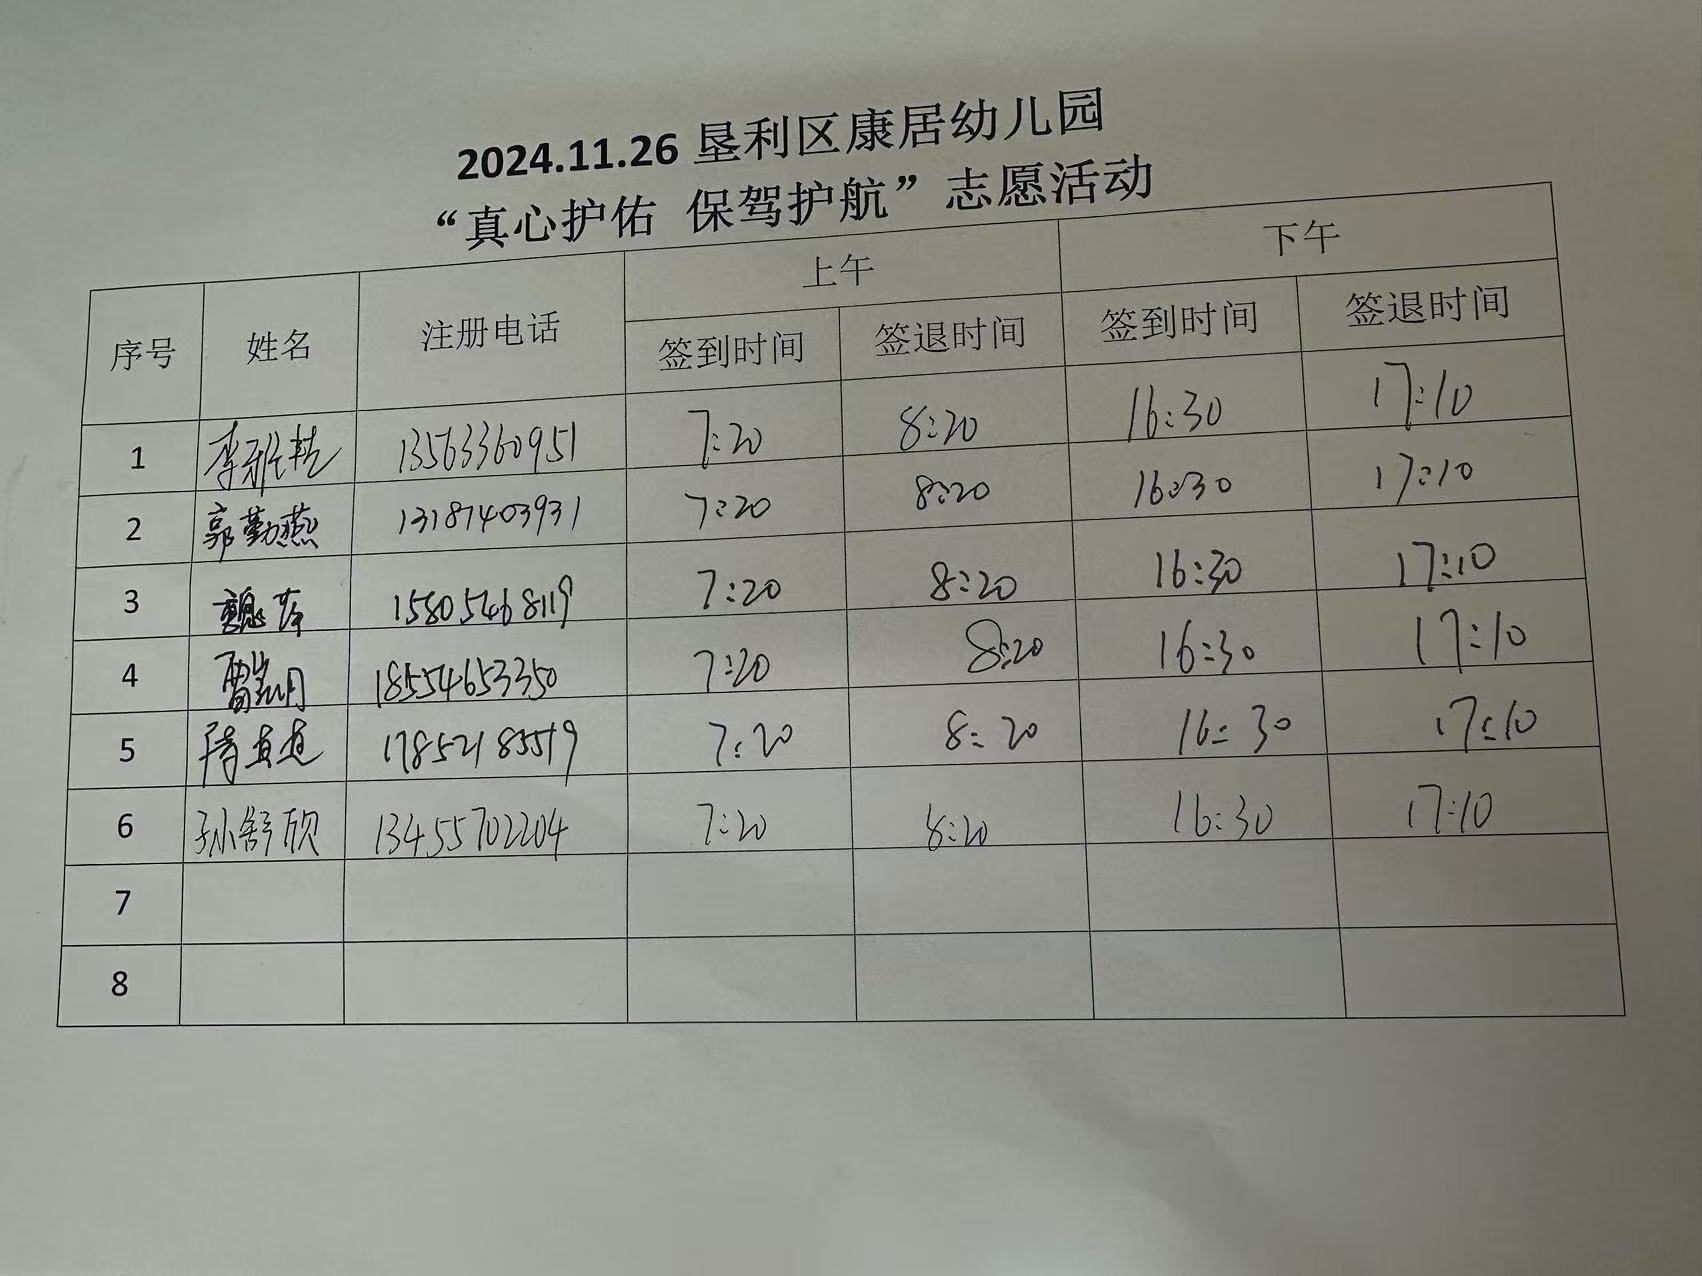 2024.11.26 垦利区康居幼儿园
“真心护佑 保驾护航”志愿活动
序号 姓名 注册电话 上午 下午
签到时间 签退时间 签到时间 签退时间
1 李雅乾 13563360951 7:20 8:20 16:30 17:10
2 郭勤燕 13187403931 7:20 8:20 16:30 17:10
3 15805468119 7:20 8:20 16:30 17:10
4 18554653350 7:20 8:20 16:30 17:10
5 17852185519 7:20 8:20 16:30 17:10
6 孙舒欣 13455702204 7:20 8:20 16:30 17:10
7
8